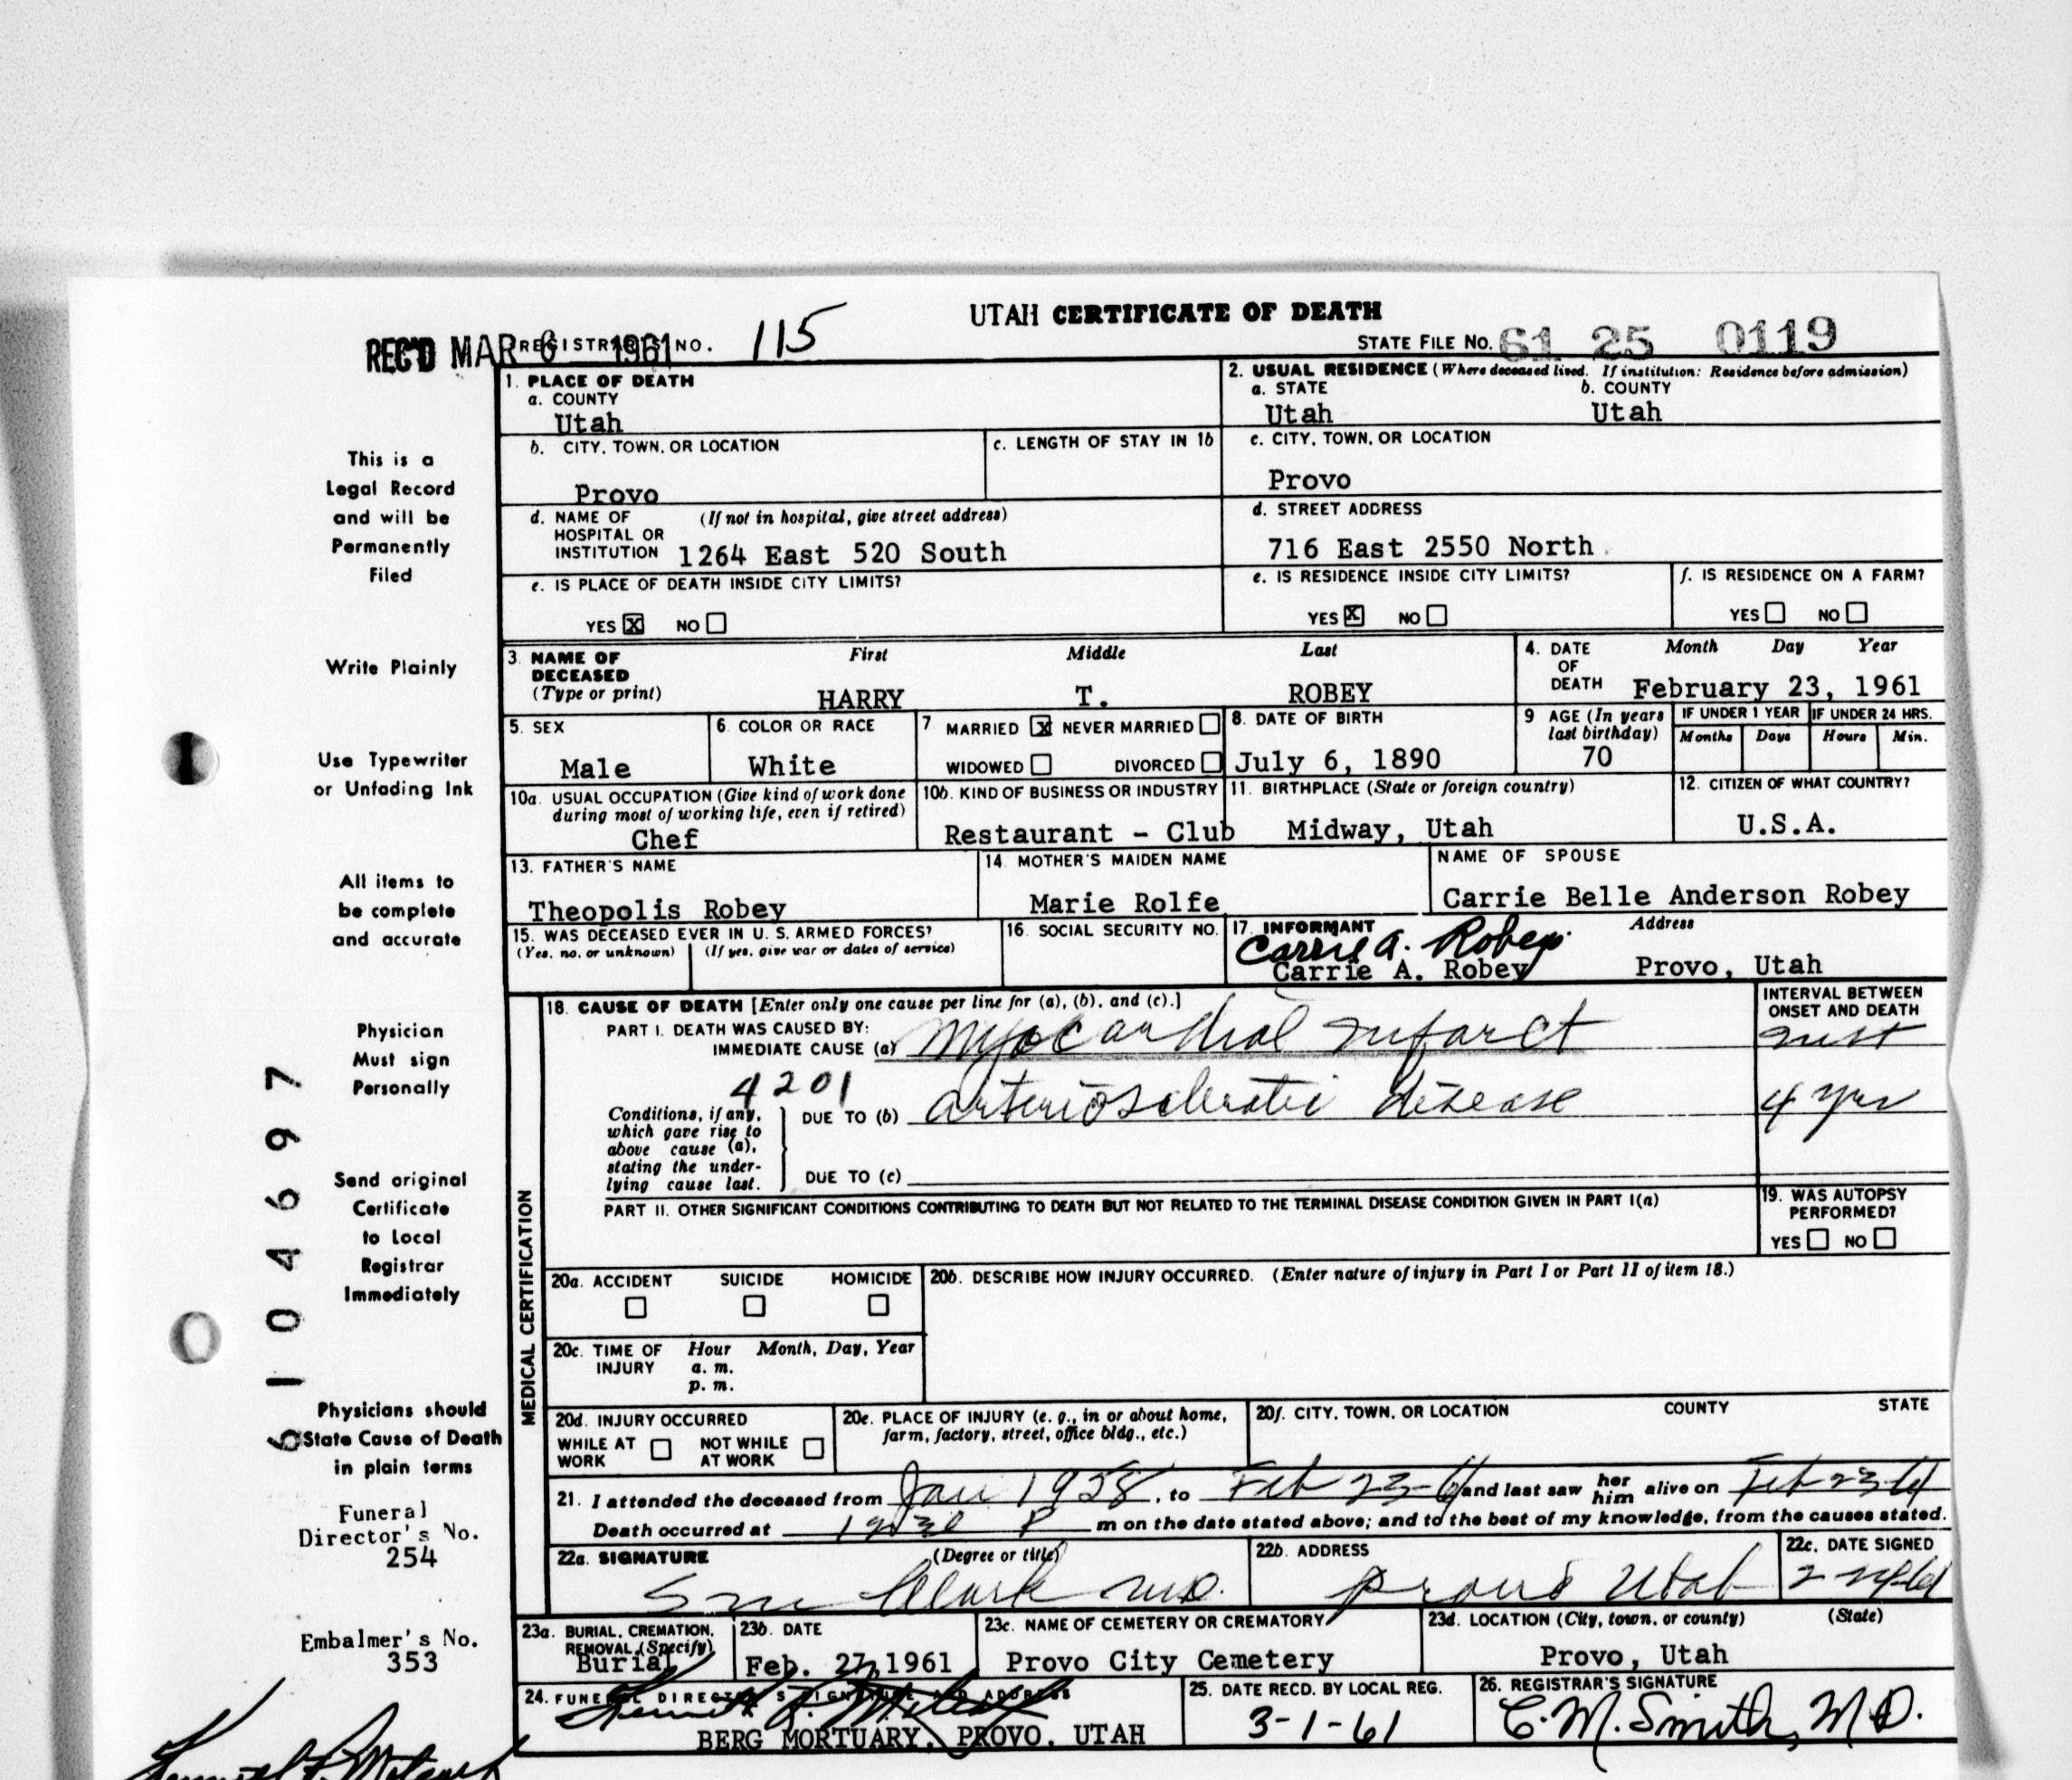 UTAH CERTIFICATE OF DEATH
REC'D MAR 6 1961 REGISTRAR'S NO. 115 STATE FILE NO. 61 25 0119
1. PLACE OF DEATH
a. COUNTY
Utah
2. USUAL RESIDENCE (Where deceased lived. If institution: Residence before admission)
a. STATE b. COUNTY
Utah Utah
b. CITY, TOWN, OR LOCATION c. LENGTH OF STAY IN 1b
Provo
c. CITY, TOWN, OR LOCATION
Provo
d. NAME OF (If not in hospital, give street address)
HOSPITAL OR
INSTITUTION 1264 East 520 South
d. STREET ADDRESS
716 East 2550 North
e. IS PLACE OF DEATH INSIDE CITY LIMITS?
YES X NO
e. IS RESIDENCE INSIDE CITY LIMITS? f. IS RESIDENCE ON A FARM?
YES X NO YES NO
3. NAME OF First Middle Last
DECEASED
(Type or print) HARRY T. ROBEY
4. DATE Month Day Year
OF
DEATH February 23, 1961
5. SEX
Male
6. COLOR OR RACE
White
7 MARRIED X NEVER MARRIED
WIDOWED DIVORCED
8. DATE OF BIRTH
July 6, 1890
9 AGE (In years
last birthday)
70
IF UNDER 1 YEAR IF UNDER 24 HRS.
Months Days Hours Min.
10a. USUAL OCCUPATION (Give kind of work done
during most of working life, even if retired)
Chef
10b. KIND OF BUSINESS OR INDUSTRY
Restaurant - Club
11. BIRTHPLACE (State or foreign country)
Midway, Utah
12. CITIZEN OF WHAT COUNTRY?
U.S.A.
13. FATHER'S NAME
Theopolis Robey
14. MOTHER'S MAIDEN NAME
Marie Rolfe
NAME OF SPOUSE
Carrie Belle Anderson Robey
15. WAS DECEASED EVER IN U. S. ARMED FORCES?
(Yes, no, or unknown) (If yes, give war or dates of service)
16. SOCIAL SECURITY NO.
17. INFORMANT Address
Carrie A. Robey
Carrie A. Robey Provo, Utah
MEDICAL CERTIFICATION
18. CAUSE OF DEATH [Enter only one cause per line for (a), (b), and (c).]
INTERVAL BETWEEN
ONSET AND DEATH
PART I. DEATH WAS CAUSED BY:
IMMEDIATE CAUSE (a) Myocardial Infarct
4201
Conditions, if any,
which gave rise to
above cause (a),
stating the under-
lying cause last.
DUE TO (b) arteriosclerotic disease 4 yrs
DUE TO (c)
PART II. OTHER SIGNIFICANT CONDITIONS CONTRIBUTING TO DEATH BUT NOT RELATED TO THE TERMINAL DISEASE CONDITION GIVEN IN PART I(a)
19. WAS AUTOPSY
PERFORMED?
YES NO
20a. ACCIDENT SUICIDE HOMICIDE
20b. DESCRIBE HOW INJURY OCCURRED. (Enter nature of injury in Part I or Part II of item 18.)
20c. TIME OF Hour Month, Day, Year
INJURY a. m.
p. m.
20d. INJURY OCCURRED
WHILE AT NOT WHILE
WORK AT WORK
20e. PLACE OF INJURY (e. g., in or about home,
farm, factory, street, office bldg., etc.)
20f. CITY, TOWN, OR LOCATION COUNTY STATE
21. I attended the deceased from Jan 1958, to Feb 23-61 and last saw her him alive on Feb 23 61
Death occurred at 1230 P m on the date stated above; and to the best of my knowledge, from the causes stated.
22a. SIGNATURE (Degree or title)
Clark MD.
22b. ADDRESS
Provo Utah
22c. DATE SIGNED
2-24-61
23a. BURIAL, CREMATION,
REMOVAL (Specify)
Burial
23b. DATE
Feb. 27, 1961
23c. NAME OF CEMETERY OR CREMATORY
Provo City Cemetery
23d. LOCATION (City, town, or county) (State)
Provo, Utah
24. FUNERAL DIRECTOR'S SIGNATURE AND ADDRESS
BERG MORTUARY, PROVO, UTAH
25. DATE RECD. BY LOCAL REG.
3-1-61
26. REGISTRAR'S SIGNATURE
C. M. Smith, M.D.
This is a
Legal Record
and will be
Permanently
Filed
Write Plainly
Use Typewriter
or Unfading Ink
All items to
be complete
and accurate
Physician
Must sign
Personally
Send original
Certificate
to Local
Registrar
Immediately
Physicians should
State Cause of Death
in plain terms
Funeral
Director's No.
254
Embalmer's No.
353
6104697